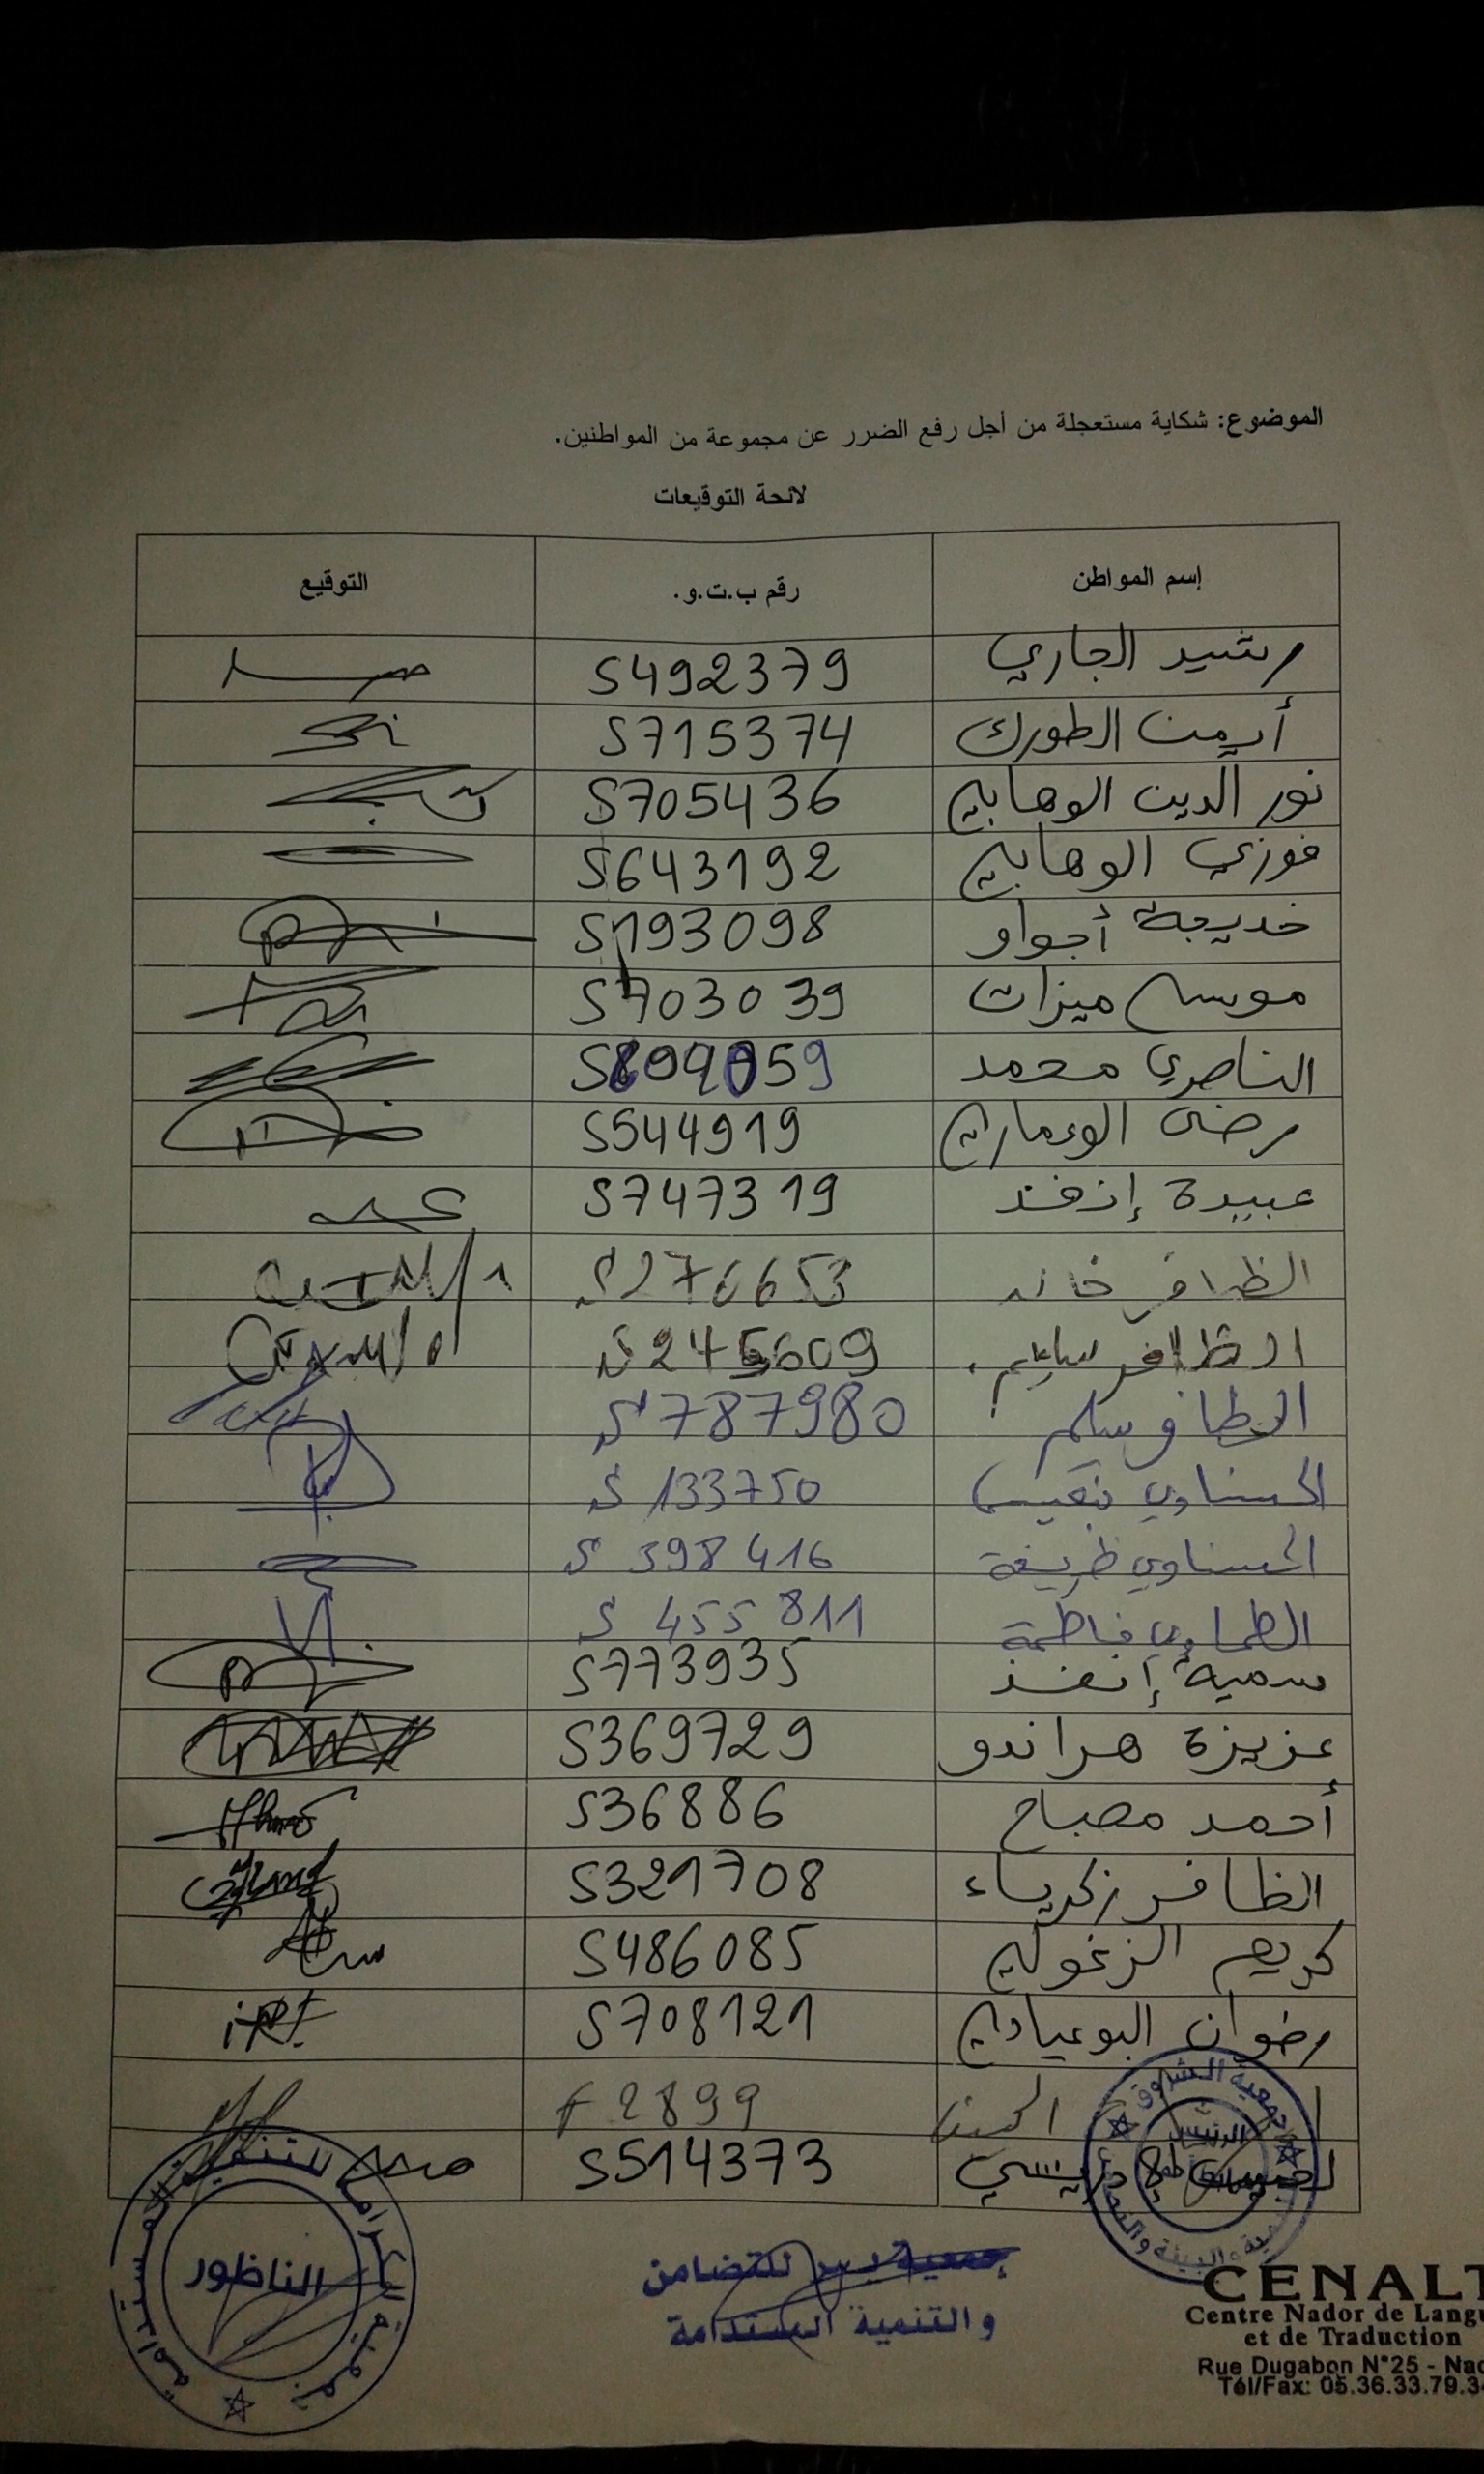 الموضوع: شكاية مستعجلة من أجل رفع الضرر عن مجموعة من المواطنين.
لائحة التوقيعات
إسم المواطن رقم ب.ت.و. التوقيع
رشيد الجاري S492379
أيمن الطورك S715374
نور الدين الوهابي S705436
فوزي الوهابي S643192
خديجة أجواو S193098
موسى ميزات S703039
الناصري محمد
رضى S544919
عبيدة إنفذ S747319
الظافر خالد S276653
الظافر سليم
الظافر سليم S787980
الحسناوي نفيسة S133750
الحسناوي ظريفة S398416
الطحاوي فاطمة S455811
سمية إنفذ S773935
عزيزة هراندو S369729
أحمد مصباح S36886
الظافر زكرياء S321708
كريم الزغولي S486085
رضوان البوعيادي S708121
2899
S514373
جمعية الشروق
الرئيس
الناظور
للتضامن
والتنمية المستدامة
CENALT
Centre Nador de Langu
et de Traduction
Rue Dugabon N°25 - Nad
Tél/Fax: 05.36.33.79.3